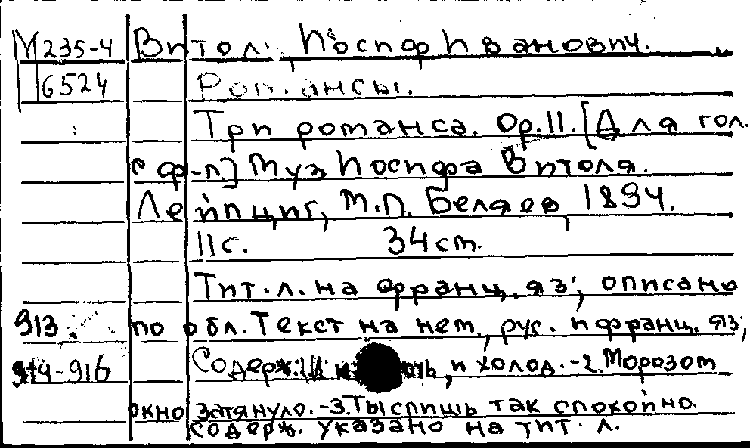 М 235-4 Витол, Иосиф Иванович.
6524 Романсы.
Три романса. Op. 11. [Для гол.
с ф-п] Муз Иосифа Витоля.
Лейпциг, М.П. Беляев, 1894.
11 с. 34 cm.
Тит. л. на франц. яз., описано
913. по обл. Текст на нем., рус. и франц. яз.,
914-916 Содерж.: и холод. -2. Морозом
окно затянуло. -3. Ты спишь так спокойно.
содерж. указано на тит. л.